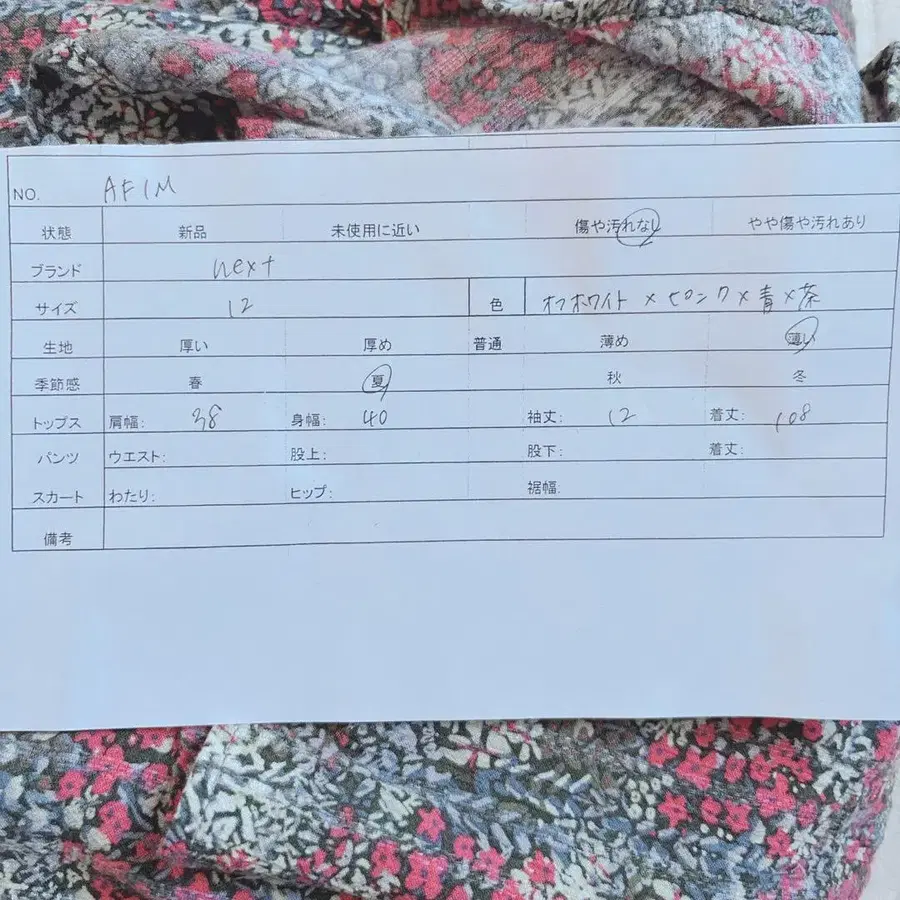 NO. AFIM
状態 新品 未使用に近い 傷や汚れなし やや傷や汚れあり
ブランド next
サイズ 12 色 オフホワイト×ピンク×青×茶
生地 厚い 厚め 普通 薄め 薄い
季節感 春 夏 秋 冬
トップス 肩幅: 38 身幅: 40 袖丈: 12 着丈: 108
パンツ ウエスト: 股上: 股下: 着丈:
スカート わたり: ヒップ: 裾幅:
備考